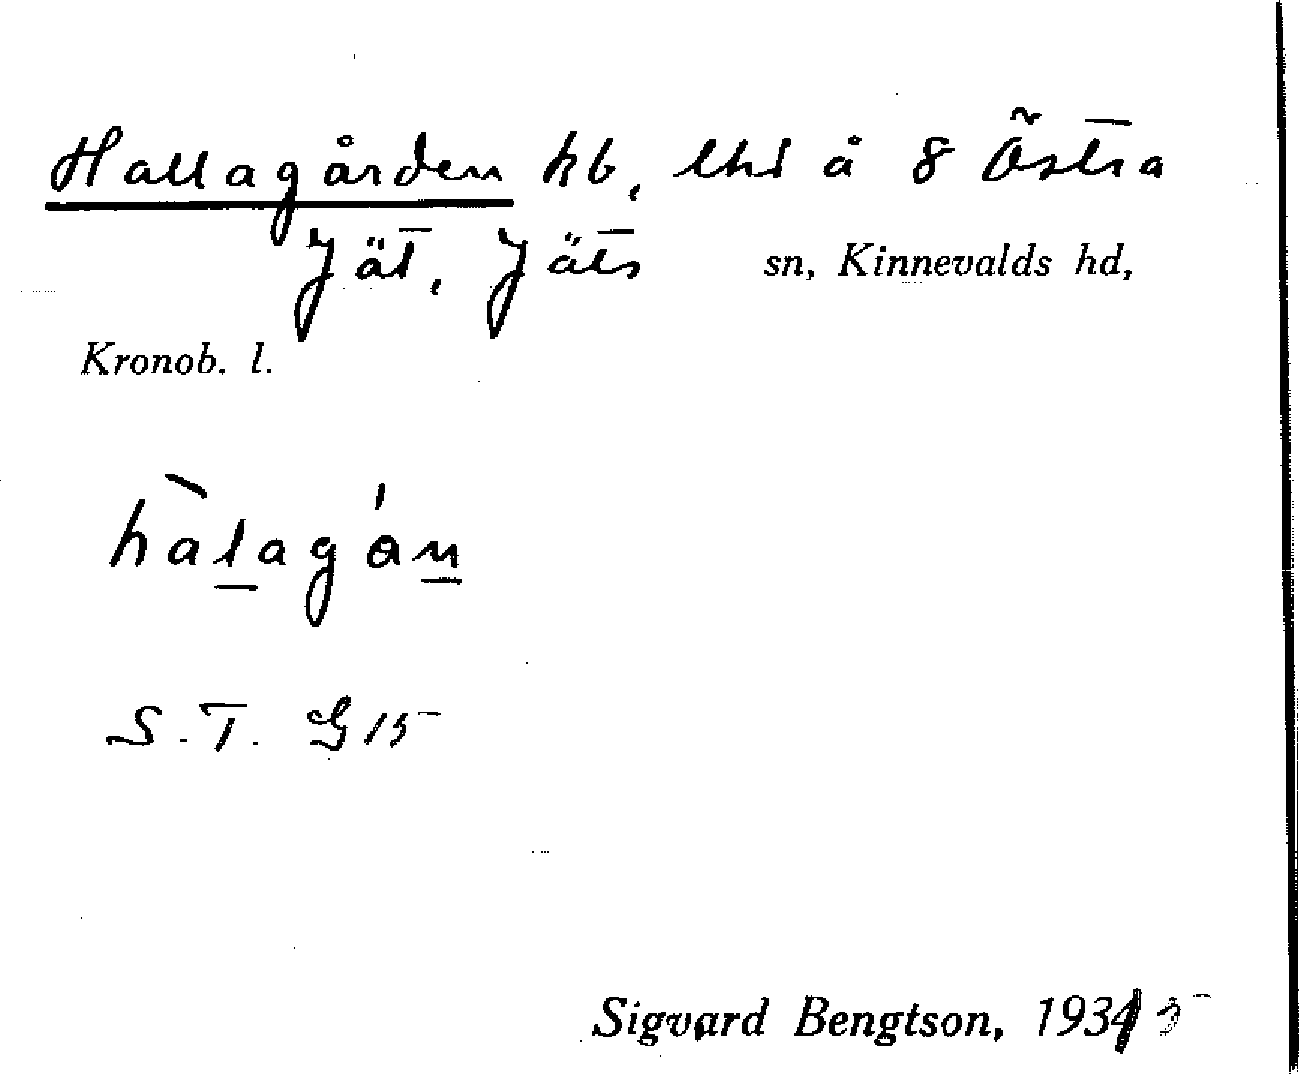 Hallagården hb, lhs å 8 Östra
Jät, Jäts sn, Kinnevalds hd,
Kronob. l.
hàlagón
S. T. G 15
Sigvard Bengtson, 1935